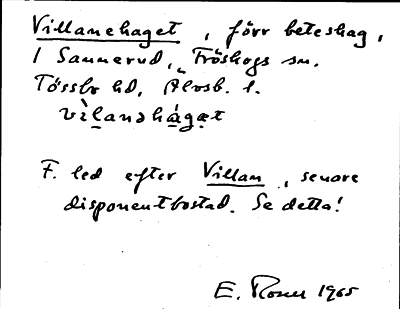 Villanehaget, förr beteshag,
i Sannerud, Fröskogs sn.
Tössbo hd, Älvsb. l.
vìlanəhágət
F. led efter Villan, senare
disponentbostad. Se detta!
E. Rosell 1965